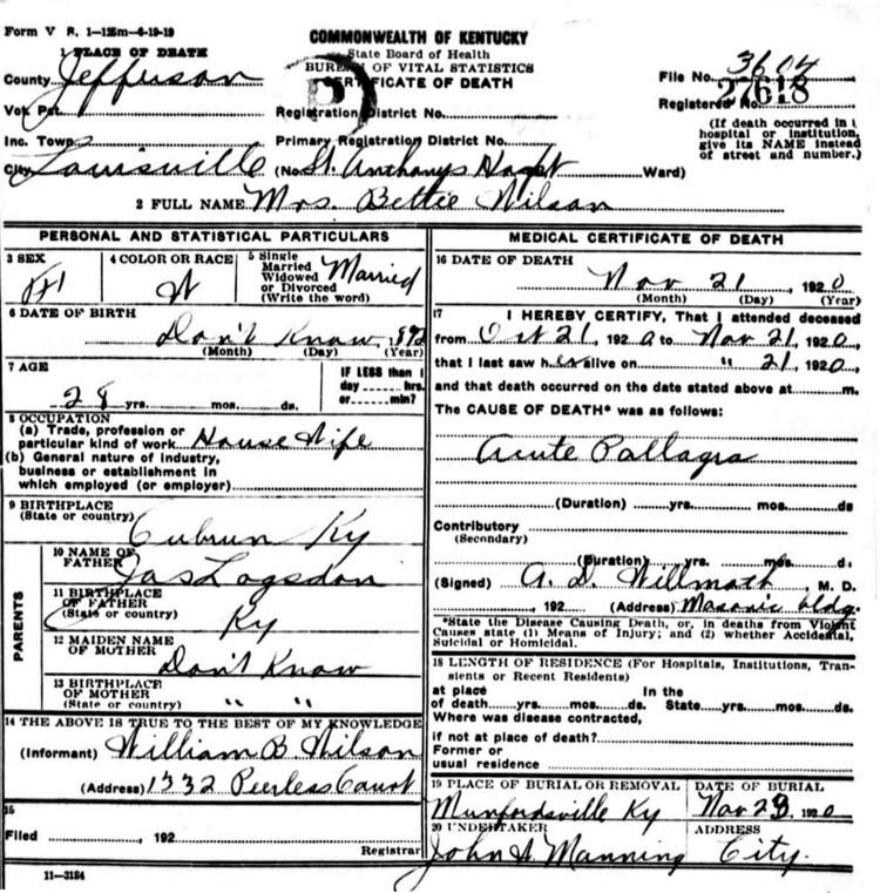 Form V S. 1-125m-6-19-19
COMMONWEALTH OF KENTUCKY
State Board of Health
BUREAU OF VITAL STATISTICS
CERTIFICATE OF DEATH
1 PLACE OF DEATH
County Jefferson
Vot. Pct.
Inc. Town
City Louisville
Registration District No.
Primary Registration District No.
(No. St. Anthonys Hospt Ward)
File No. 3604
Registered No. 27618
(If death occurred in a
hospital or institution,
give its NAME instead
of street and number.)
2 FULL NAME Mrs. Bettie Wilson
PERSONAL AND STATISTICAL PARTICULARS
3 SEX
4 COLOR OR RACE W
5 Single
Married
Widowed
or Divorced
(Write the word)
Married
6 DATE OF BIRTH
Don't Know, 1892
(Month) (Day) (Year)
7 AGE
28 yrs. mos. ds.
IF LESS than 1
day hrs.
or min?
8 OCCUPATION
(a) Trade, profession or
particular kind of work House Wife
(b) General nature of industry,
business or establishment in
which employed (or employer)
9 BIRTHPLACE
(State or country)
Cubrun Ky
PARENTS
10 NAME OF
FATHER
Jas Logsdon
11 BIRTHPLACE
OF FATHER
(State or country)
Ky
12 MAIDEN NAME
OF MOTHER
Don't Know
13 BIRTHPLACE
OF MOTHER
(State or country) " "
14 THE ABOVE IS TRUE TO THE BEST OF MY KNOWLEDGE
(Informant) William B. Wilson
(Address) 1332 Peerless Court
15
Filed , 192
Registrar
11-3184
MEDICAL CERTIFICATE OF DEATH
16 DATE OF DEATH
Nov 21, 1920
(Month) (Day) (Year)
17 I HEREBY CERTIFY, That I attended deceased
from Oct 21, 1920 to Nov 21, 1920,
that I last saw her alive on " 21, 1920,
and that death occurred on the date stated above at m.
The CAUSE OF DEATH* was as follows:
Acute Pallagra
(Duration) yrs. mos. ds
Contributory
(Secondary)
(Duration) yrs. mos. d.
(Signed) A. D. Willmoth, M. D.
, 192 (Address) Masonic bldg.
*State the Disease Causing Death, or, in deaths from Violent
Causes state (1) Means of Injury; and (2) whether Accidental,
Suicidal or Homicidal.
18 LENGTH OF RESIDENCE (For Hospitals, Institutions, Tran-
sients or Recent Residents)
at place In the
of death yrs. mos. ds. State yrs. mos. ds.
Where was disease contracted,
if not at place of death?
Former or
usual residence
19 PLACE OF BURIAL OR REMOVAL
Munfordsville Ky
DATE OF BURIAL
Nov 23, 1920
20 UNDERTAKER
John A. Manning
ADDRESS
City.